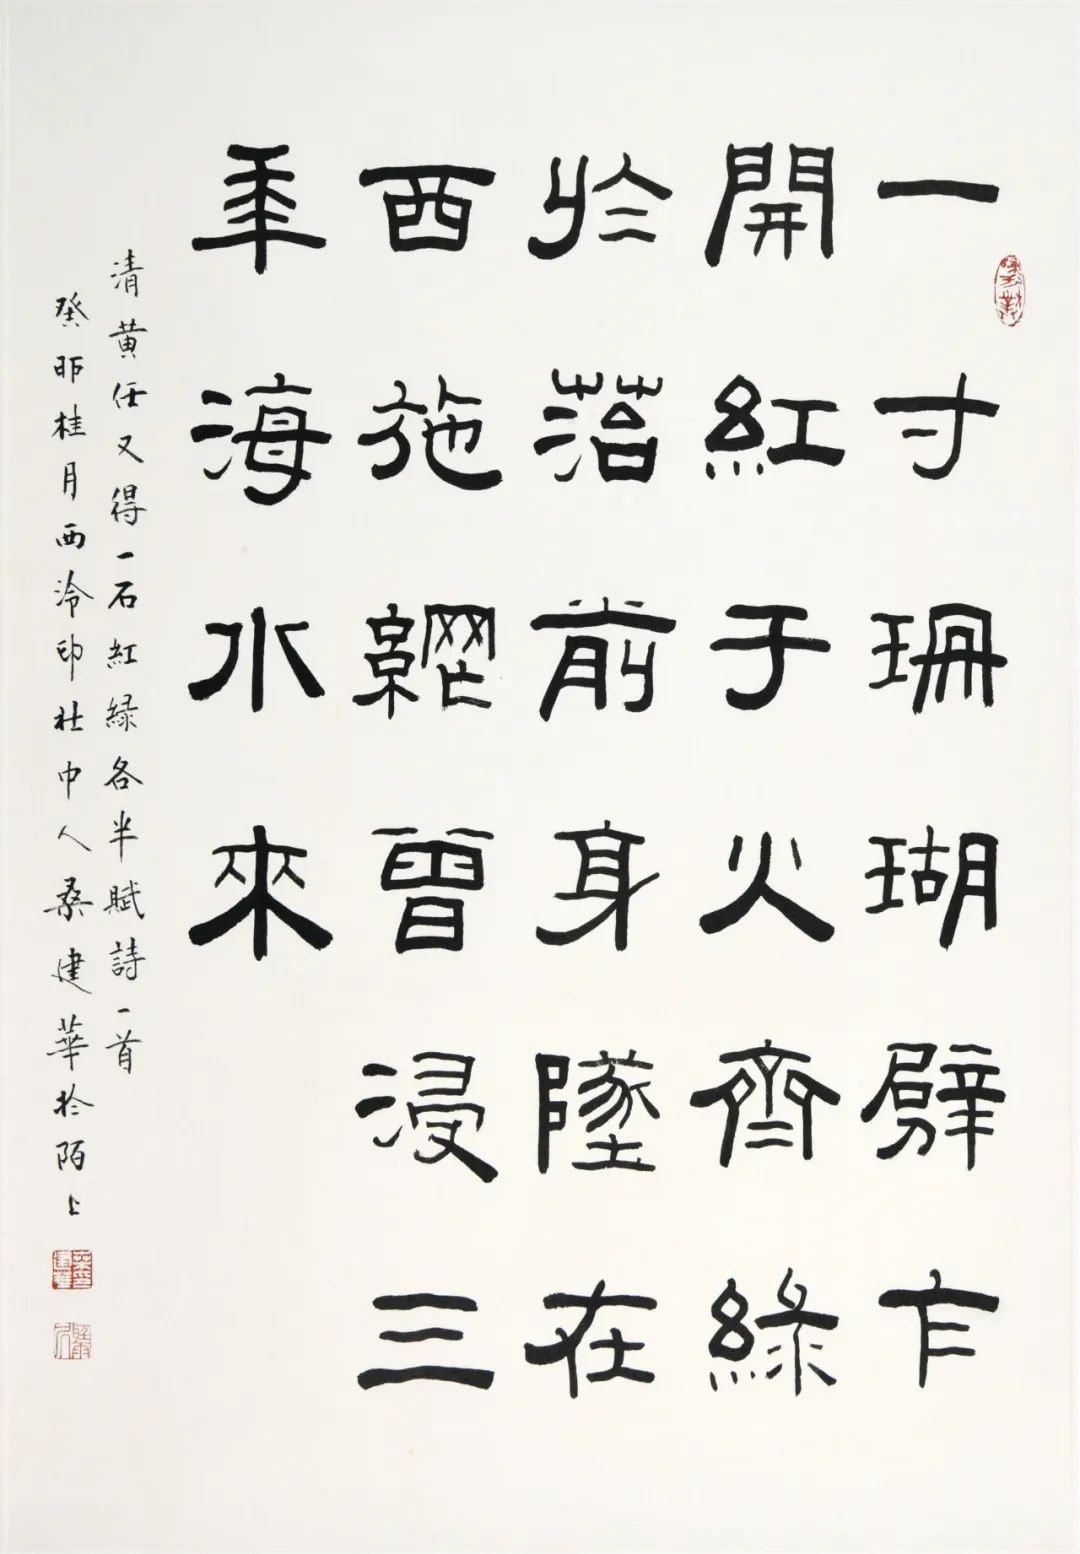 一寸珊瑚劈乍
開紅于火齊綠
於菭前身墜在
西施網曾浸三
年海水來
清黄任又得一石紅緑各半賦詩一首
癸卯桂月西泠印社中人桑建華於陌上